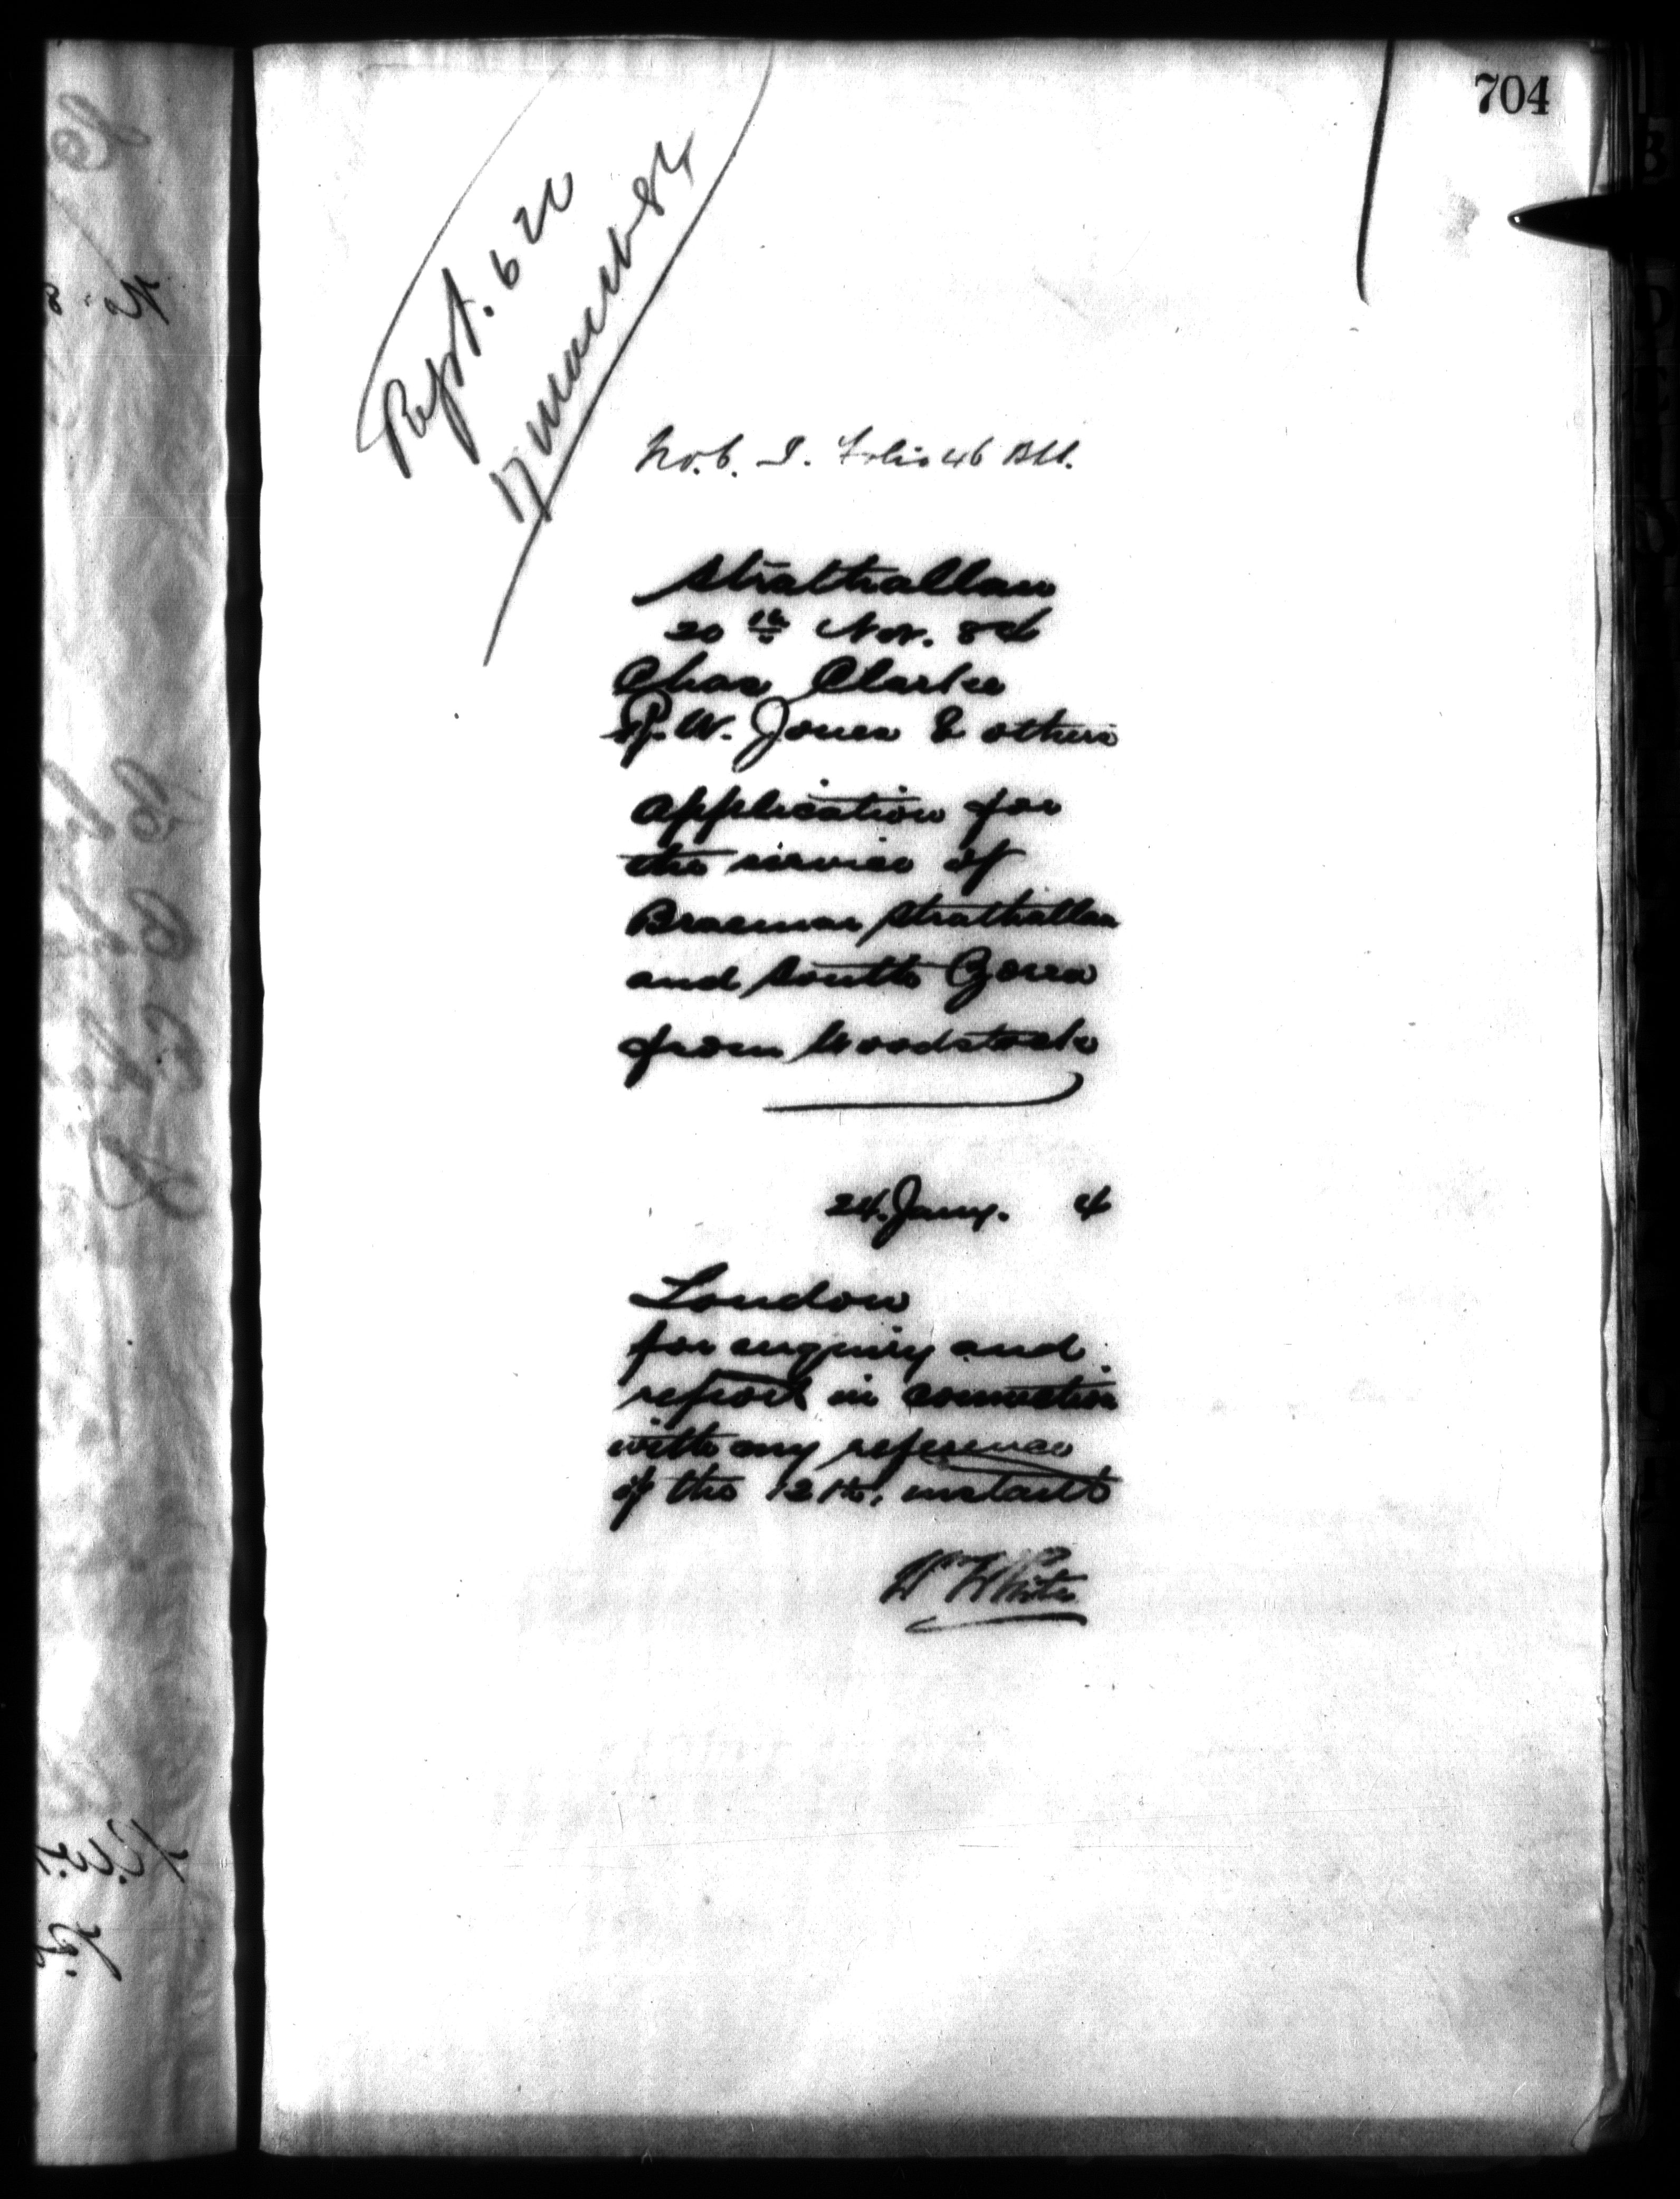 704
Rept. 620
17 March 84
No. 6. I. Folio 46 Bk.
Strathallan
20th Nov. 84
Chas Clarke
P. W. Jones & others
Application for
the service of
Braemar Strathallan
and South Zorra
from Woodstock
24. Jany. 4
London
for enquiry and
report in connection
with my reference
of the 12th, instant
Wm White